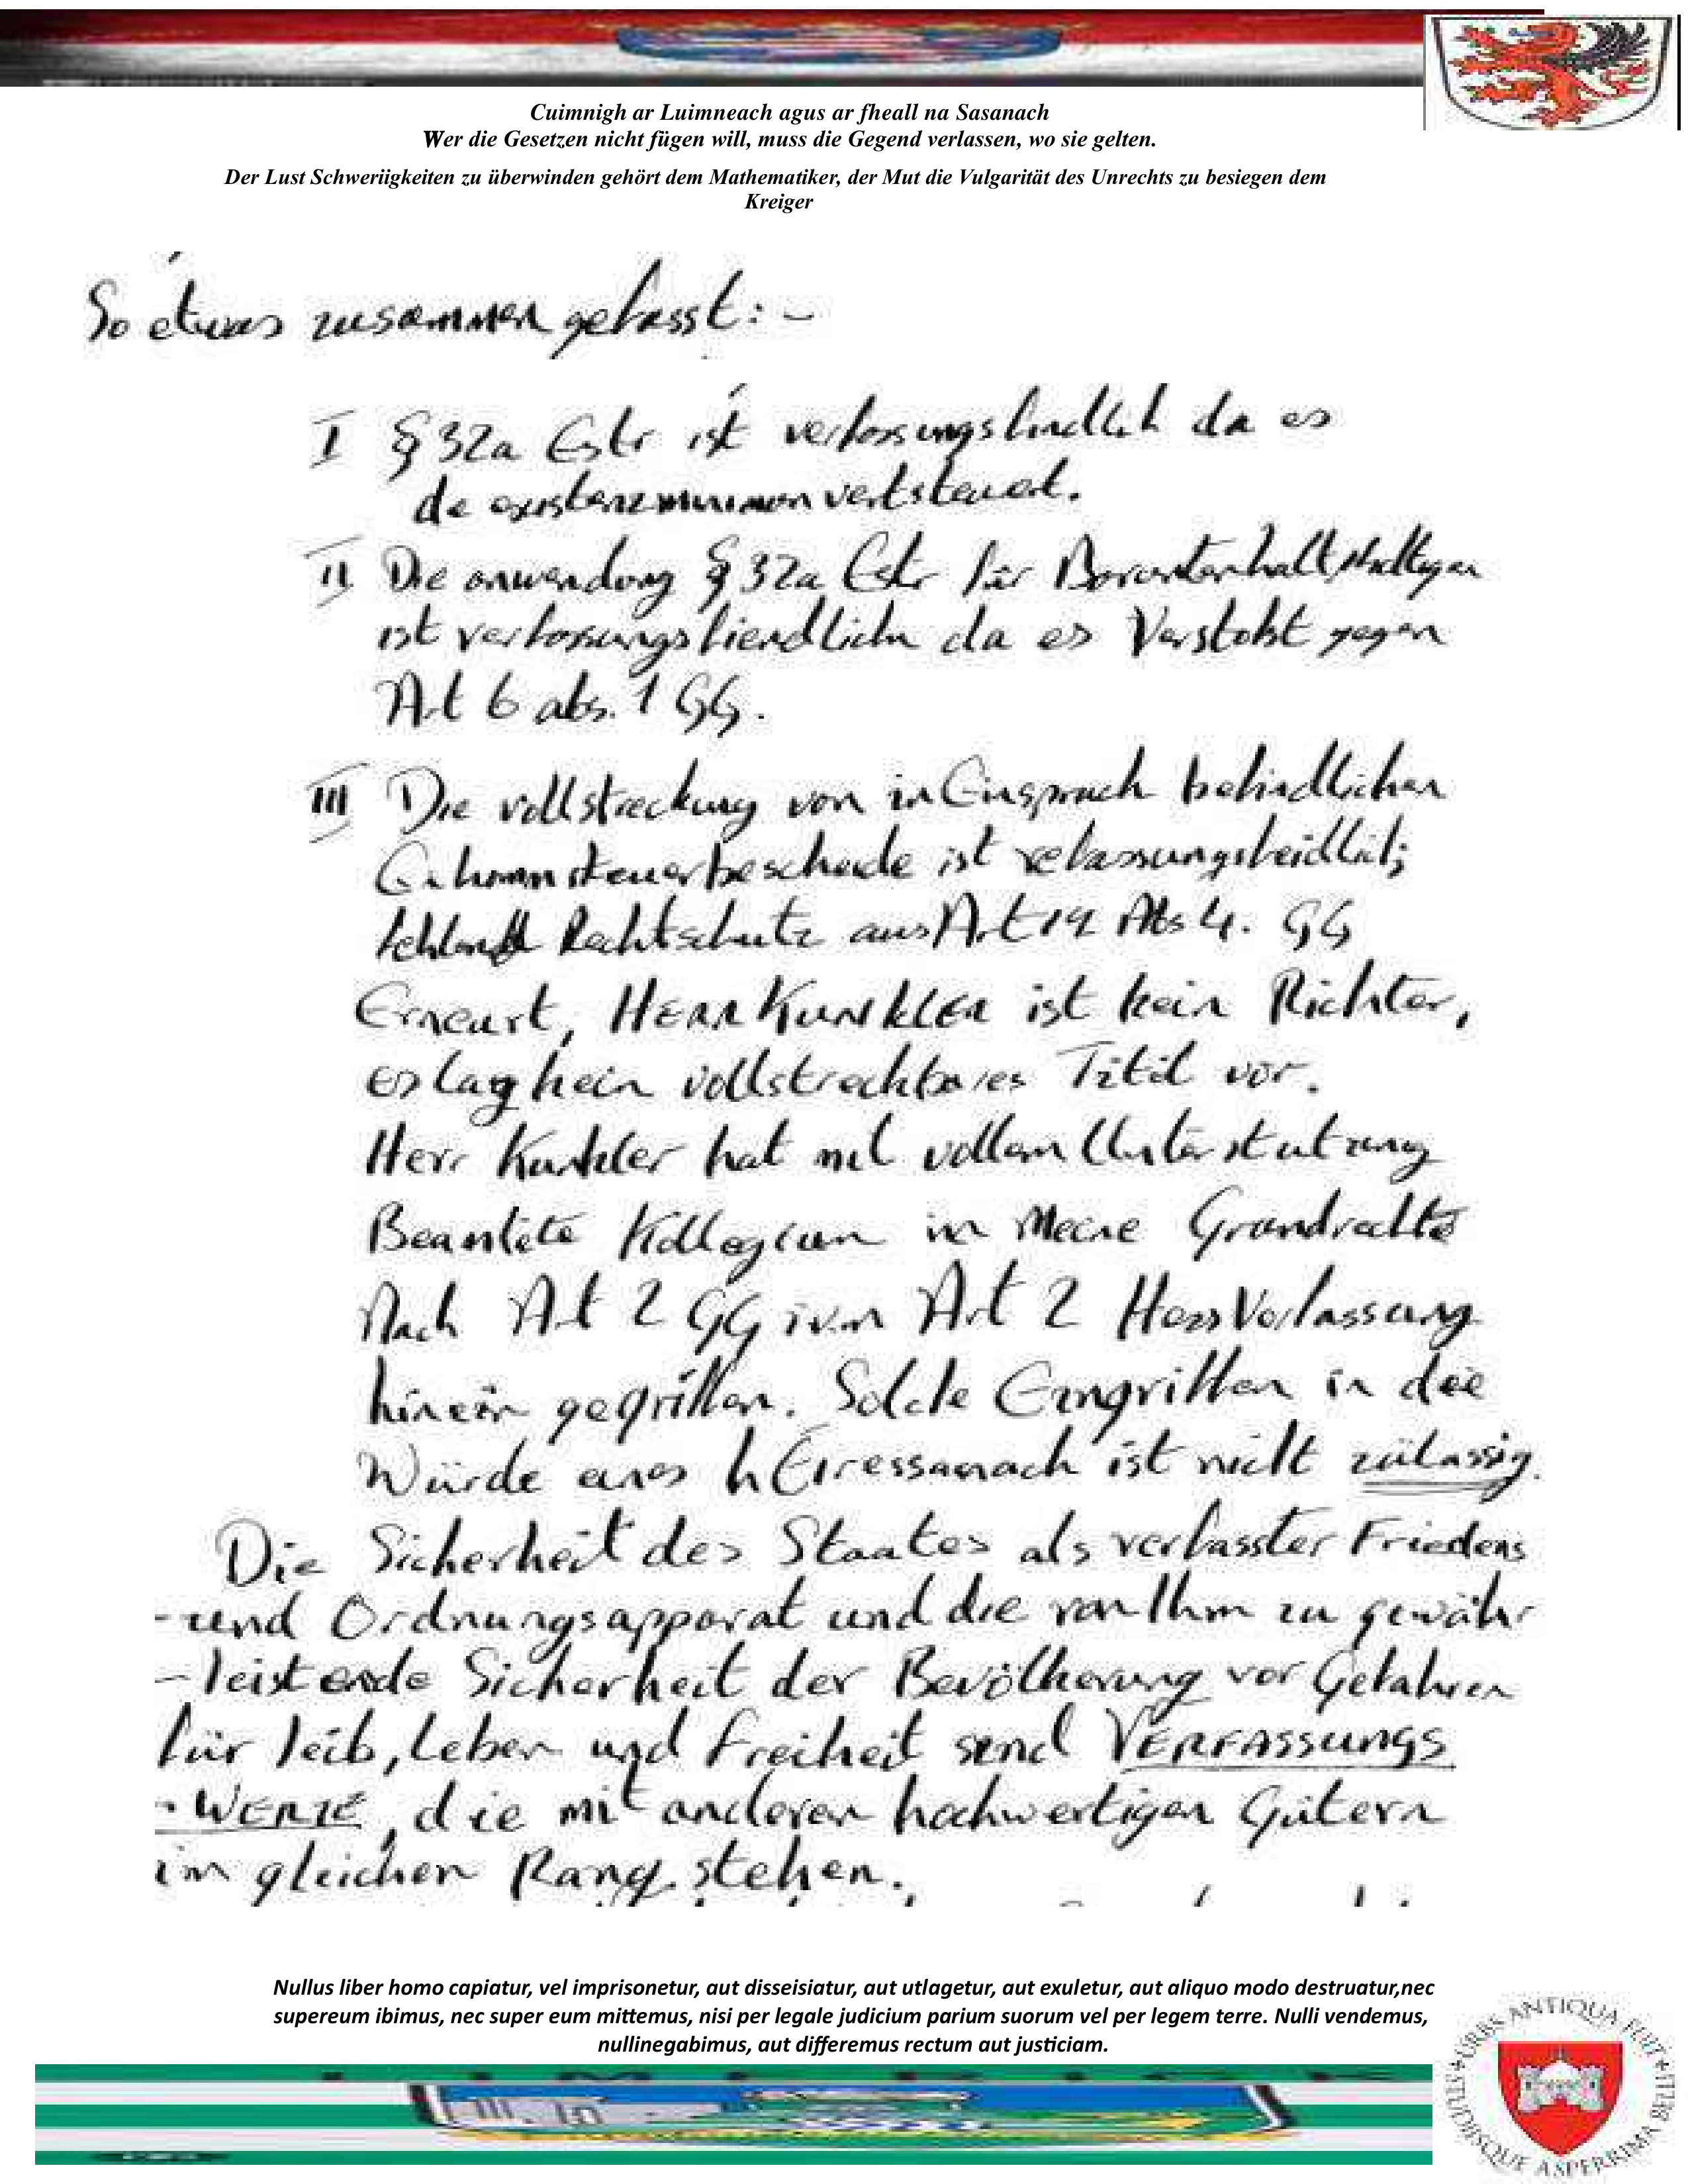 Cuimnigh ar Luimneach agus ar fheall na Sasanach
Wer die Gesetzen nicht fügen will, muss die Gegend verlassen, wo sie gelten.
Der Lust Schweriigkeiten zu überwinden gehört dem Mathematiker, der Mut die Vulgarität des Unrechts zu besiegen dem
Kreiger
So etwas zusammen gefasst: -
I § 32a Estr ist verfassungsfindlich da es
de existenzminimum verststeuert.
II Die anwendung § 32a Estr für
ist verfassungsfiendlich da es Verstoßt gegen
Art 6 abs. 1 GG.
III Die vollstreckung von in Einspruch befindlichen
Einkommsteuerbescheide ist verfassungsfeidlich;
Rechtschutz aus Art 19 Abs 4. GG
Erneurt, HERR KUNKLER ist kein Richter,
es lag kein vollstreckbares Titel vor.
Herr Kunkler hat mit vollem Unterstutzung
Beamtete Kollegium in Meine Grundrechte
Nach Art 2 GG ivm Art 2 Hess Verfassung
hinein gegriffen. Solche Eingriffen in die
Würde eines hEiressanach ist nicht zülassig.
Die Sicherheit des Staates als verfasster Friedens
-und Ordnungsapparat und die von Ihm zu gewähr
-leistende Sicherheit der Bevölkerung vor Gefahren
für leib, Leben und Freiheit send VERFASSUNGS
-WERTE, die mit anderen hochwertigen Gütern
im gleichen Rang stehen.
Nullus liber homo capiatur, vel imprisonetur, aut disseisiatur, aut utlagetur, aut exuletur, aut aliquo modo destruatur,nec
supereum ibimus, nec super eum mittemus, nisi per legale judicium parium suorum vel per legem terre. Nulli vendemus,
nullinegabimus, aut differemus rectum aut justiciam.
URBS ANTIQUA FUIT STUDIISQUE ASPERRIMA BELLI